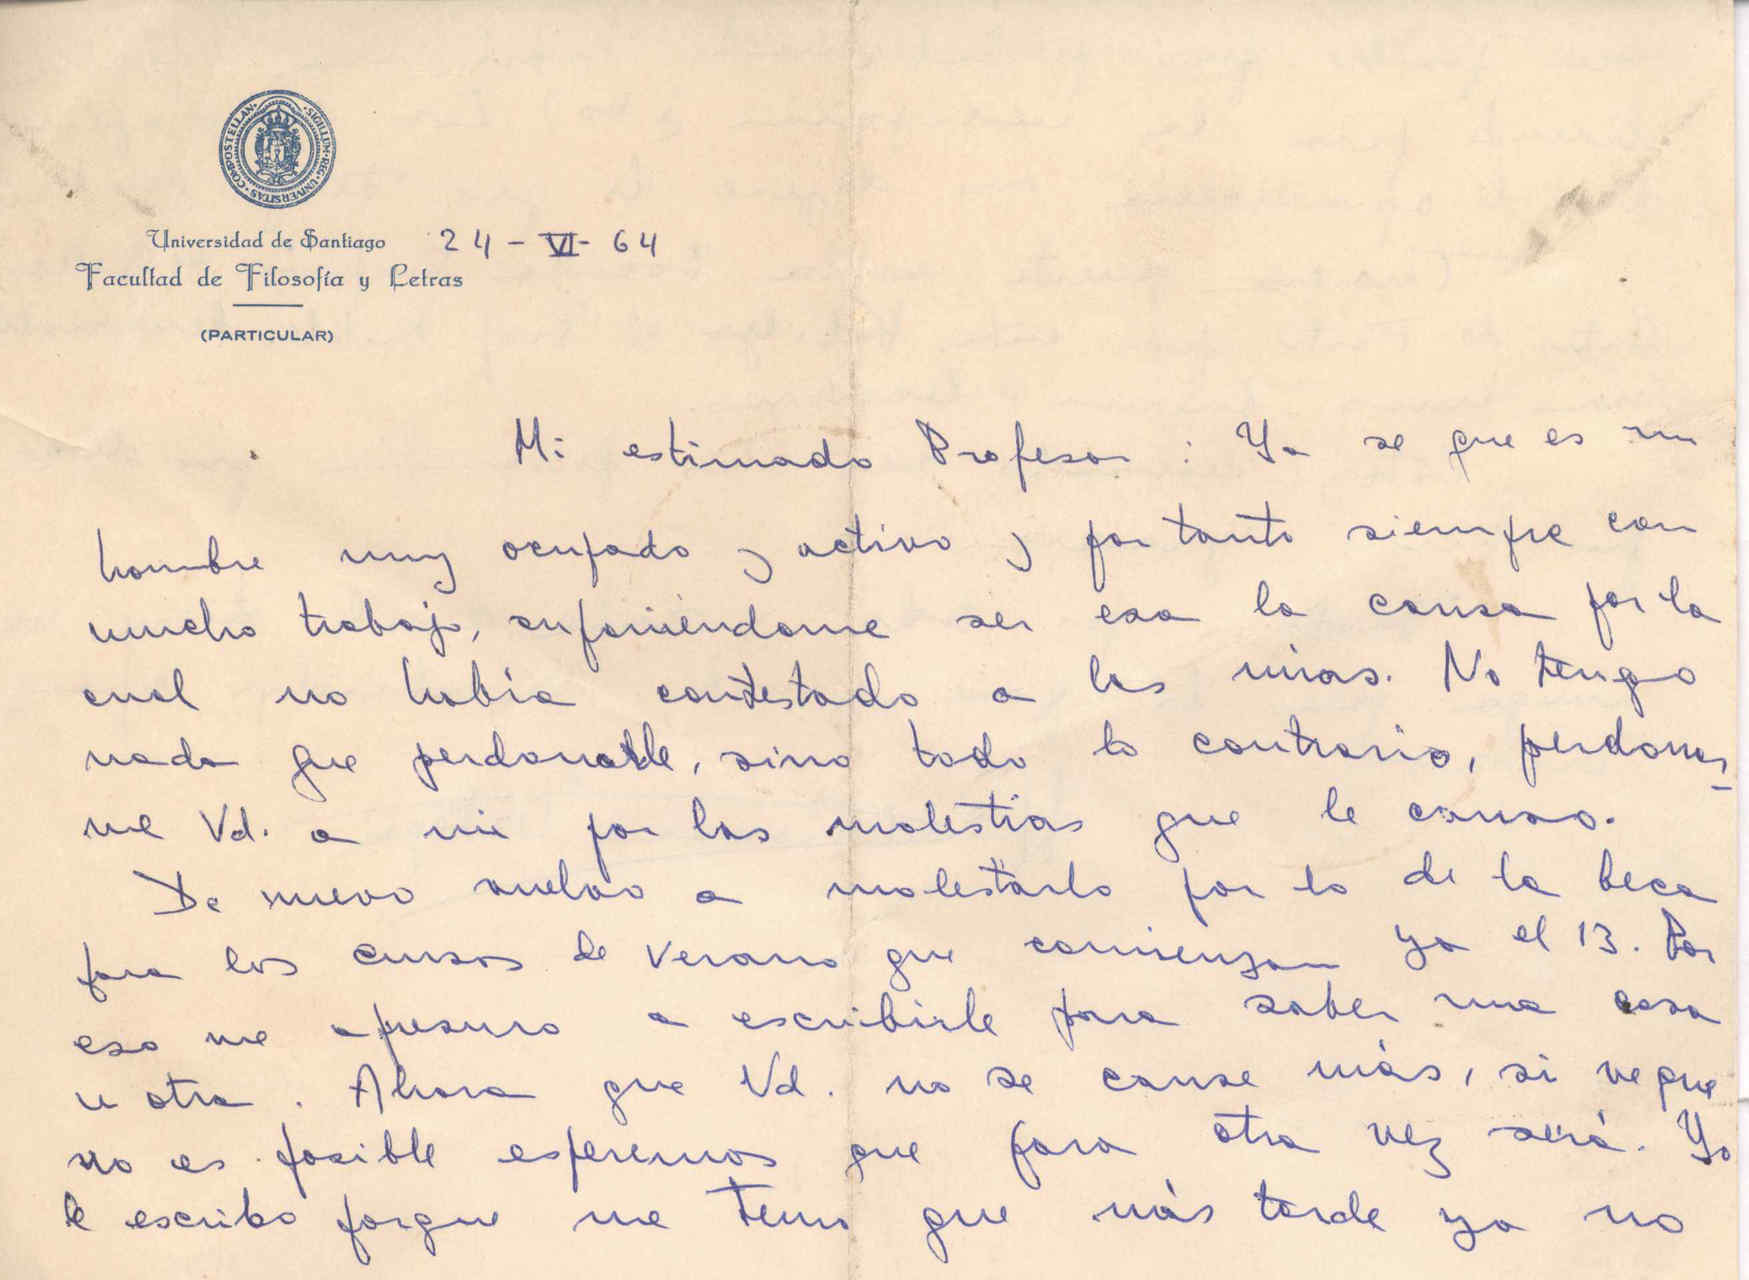 SIGILLUM·REG·UNIVERSITAS·COMPOSTELLAN·
Universidad de Santiago 24-VI-64
Facultad de Filosofía y Letras
(PARTICULAR)
Mi estimado Profesor: Ya se que es un
hombre muy ocupado y activo y por tanto siempre con
mucho trabajo, suponiéndome ser esa la causa por la
cual no había contestado a las mias. No tengo
nada que perdonarle, sino todo lo contrario, perdone
me Vd. a mi por las molestias que le causo.
De nuevo vuelvo a molestarlo por lo de la beca
para los cursos de verano que comienzan ya el 13. Por
eso me apresuro a escribirle para saber una cosa
u otra. Ahora que Vd. no se canse más, si ve que
no es posible esperemos que para otra vez será. Yo
le escribo porque me temo que más tarde ya no